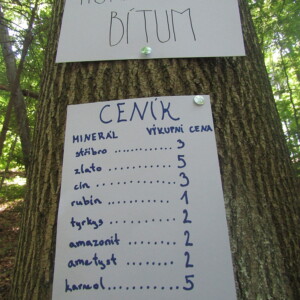 BÍTUM
CENÍK
MINERÁL VÝKUPNÍ CENA
stříbro .......... 3
zlato .......... 5
cín .......... 3
rubín .......... 1
tyrkys .......... 2
amazonit .......... 2
ametyst ........ 2
karneol .......... 5